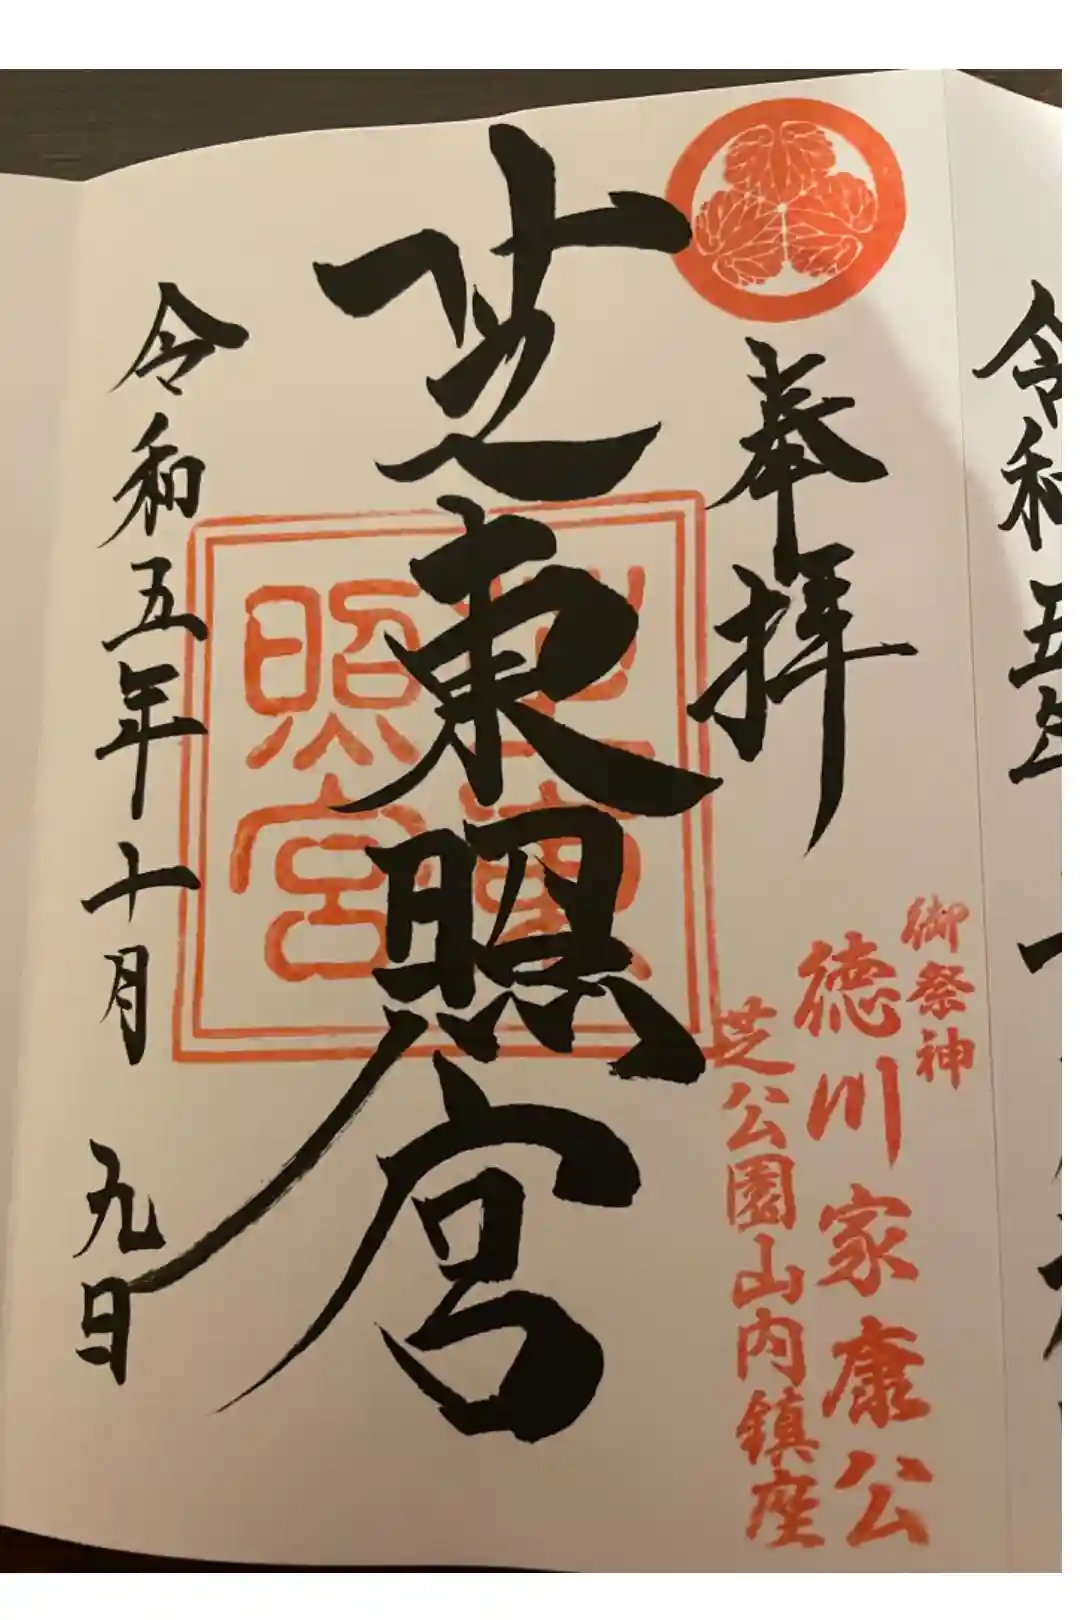 奉拝
御祭神
徳川家康公
芝公園山内鎮座
芝東照宮
照宮
令和五年十月九日